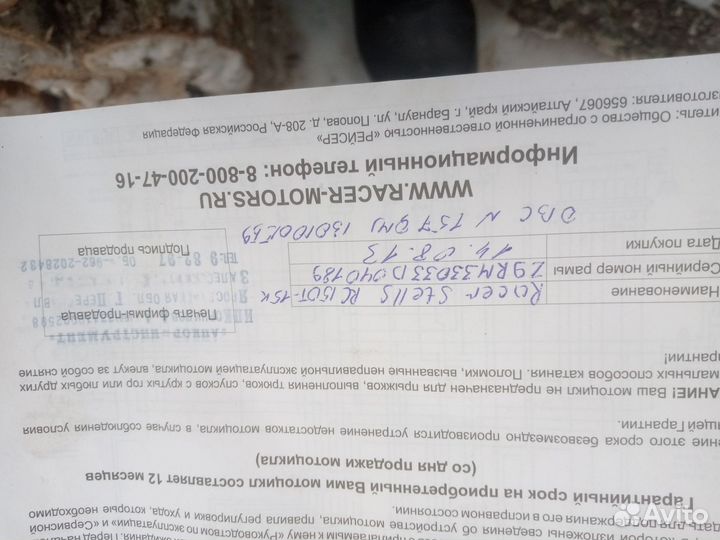 которой изложены сведения об устройстве мотоцикла, правила регулировки и ухода, которые необходимо
для поддержания его в исправном состоянии.
Гарантийный срок на приобретенный Вами мотоцикл составляет 12 месяцев
(со дня продажи мотоцикла)
ение этого срока безвозмездно производится устранение недостатков мотоцикла, в случае соблюдения условия
щей Гарантии.
АНИЕ! Ваш мотоцикл не предназначен для прыжков, выполнения трюков, спусков с крутых гор или любых других
мальных способов катания. Поломки, вызванные неправильной эксплуатацией мотоцикла, влекут за собой снятие
арантии!
Наименование Racer Stells RC150T-15X
Серийный номер рамы
Дата покупки 14.08.13
ДВС N 157QMJ
Печать фирмы-продавца
Подпись продавца
WWW.RACER-MOTORS.RU
Информационный телефон: 8-800-200-47-16
итель: Общество с ограниченной ответственностью «РЕЙСЕР»
зготовителя: 656067, Алтайский край, г. Барнаул, ул. Попова, д. 208-А, Российская Федерация
Avito